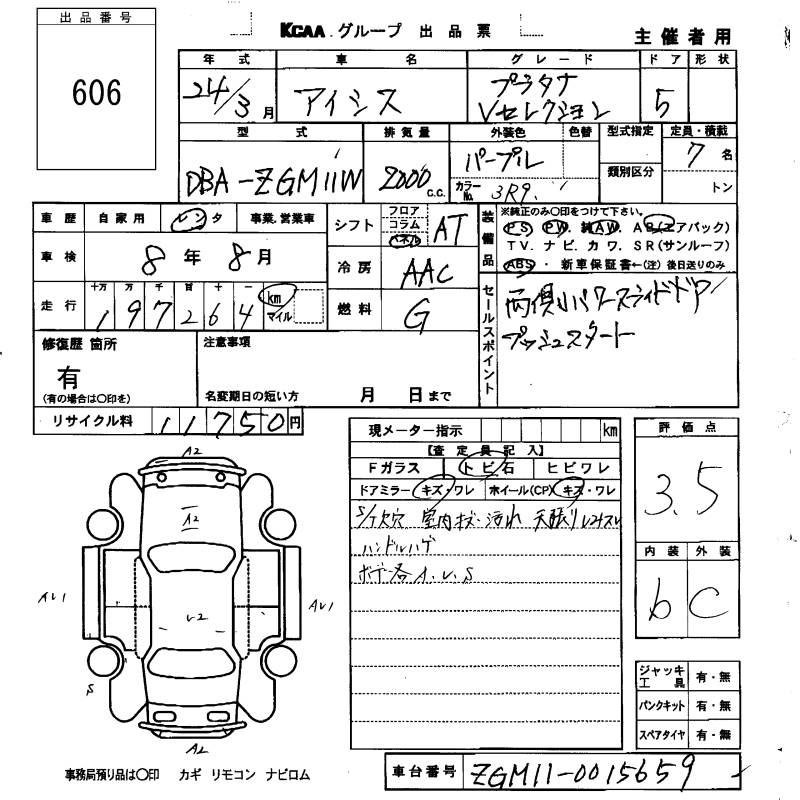 出品番号
606
KCAA.グループ 出品票
主催者用
年式 車名 グレード ドア 形状
24/3月 アイシス プラタナ Vセレクション 5
型式 排気量 外装色 色替 型式指定 定員・積載
DBA-ZGM11W 2000 c.c. パープル 7名
カラーNo. 3R9 類別区分 トン
車歴 自家用 レンタ 事業,営業車
シフト フロア コラム パネル AT
装備品 ※純正のみ○印をつけて下さい。
PS PW. 純AW. AB(エアバック)
TV. ナビ. カワ. SR(サンルーフ)
ABS ・ 新車保証書←(注) 後日送りのみ
車検 8年8月
冷房 AAC
走行 十万 万 千 百 十 一 197264 km マイル
燃料 G
セールスポイント 両側パワースライドドア
プッシュスタート
修復歴 箇所 注意事項
有
(有の場合は○印を) 名変期日の短い方 月 日まで
リサイクル料 11750円
現メーター指示 km
【査定員記入】
Fガラス トビ石 ヒビワレ
ドアミラー キズ・ワレ ホイール(CP) キズ・ワレ
S/T欠穴 室内キズ・汚れ 天張り
ハンドルハゲ
ボデー各A.U.S
評価点
3.5
内装 外装
b C
ジャッキ工具 有・無
パンクキット 有・無
スペアタイヤ 有・無
A2
A2
AU1
AU1
U2
S
A2
事務局預り品は○印 カギ リモコン ナビロム
車台番号 ZGM11-0015659